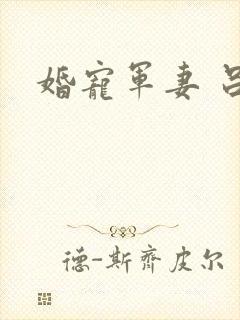 婚寵軍妻
德-斯齊皮尔